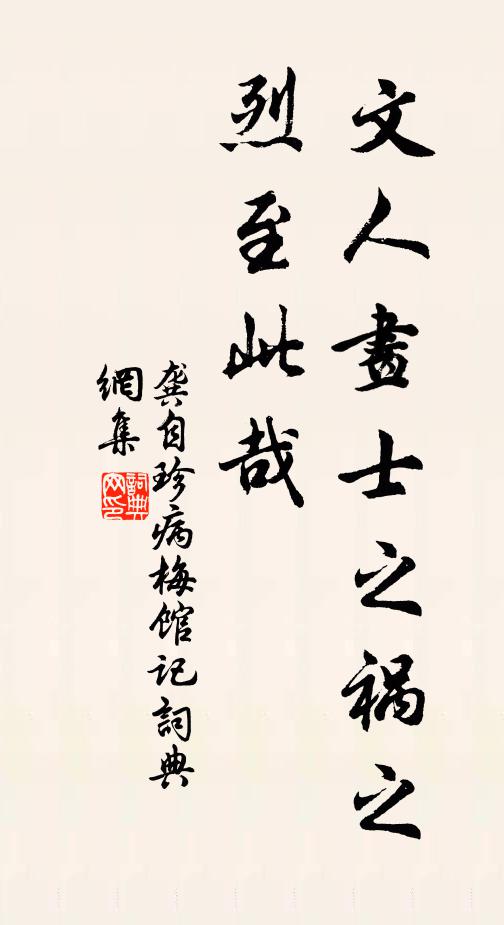 文人畫士之祸之
烈至此哉
龚自珍病梅馆记詞典
網集
詞典
网印